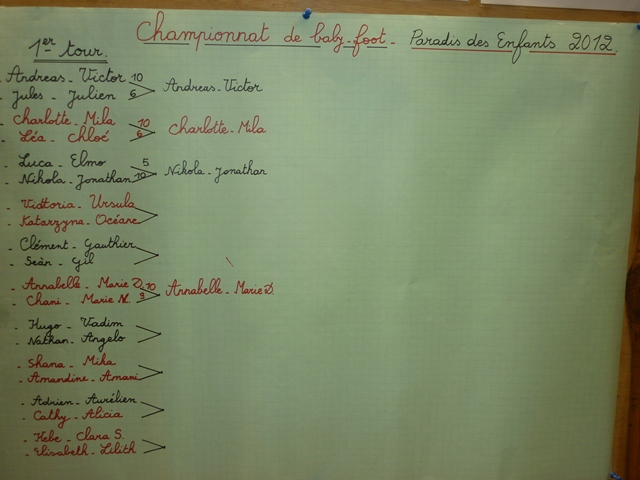 Championnat de baby-foot - Paradis des Enfants 2012.
1er tour.
- Andreas - Victor 10
- Jules - Julien 6
Andreas - Victor
- Charlotte - Mila 10
- Léa - Chloé 6
Charlotte - Mila
- Luca - Elmo 5
- Nikola - Jonathan 10
Nikola - Jonathan
- Victoria - Ursula
- Katarzyna - Océane
- Clément - Gauthier
- Seàn - Gil
- Annabelle - Marie D. 10
- Chani - Marie N. 9
Annabelle - Marie D.
- Hugo - Vadim
- Nathan - Angelo
- Shana - Mika
- Amandine - Amani
- Adrien - Aurélien
- Cathy - Alicia
- Hebe - Clara S.
- Elisabeth - Lilith